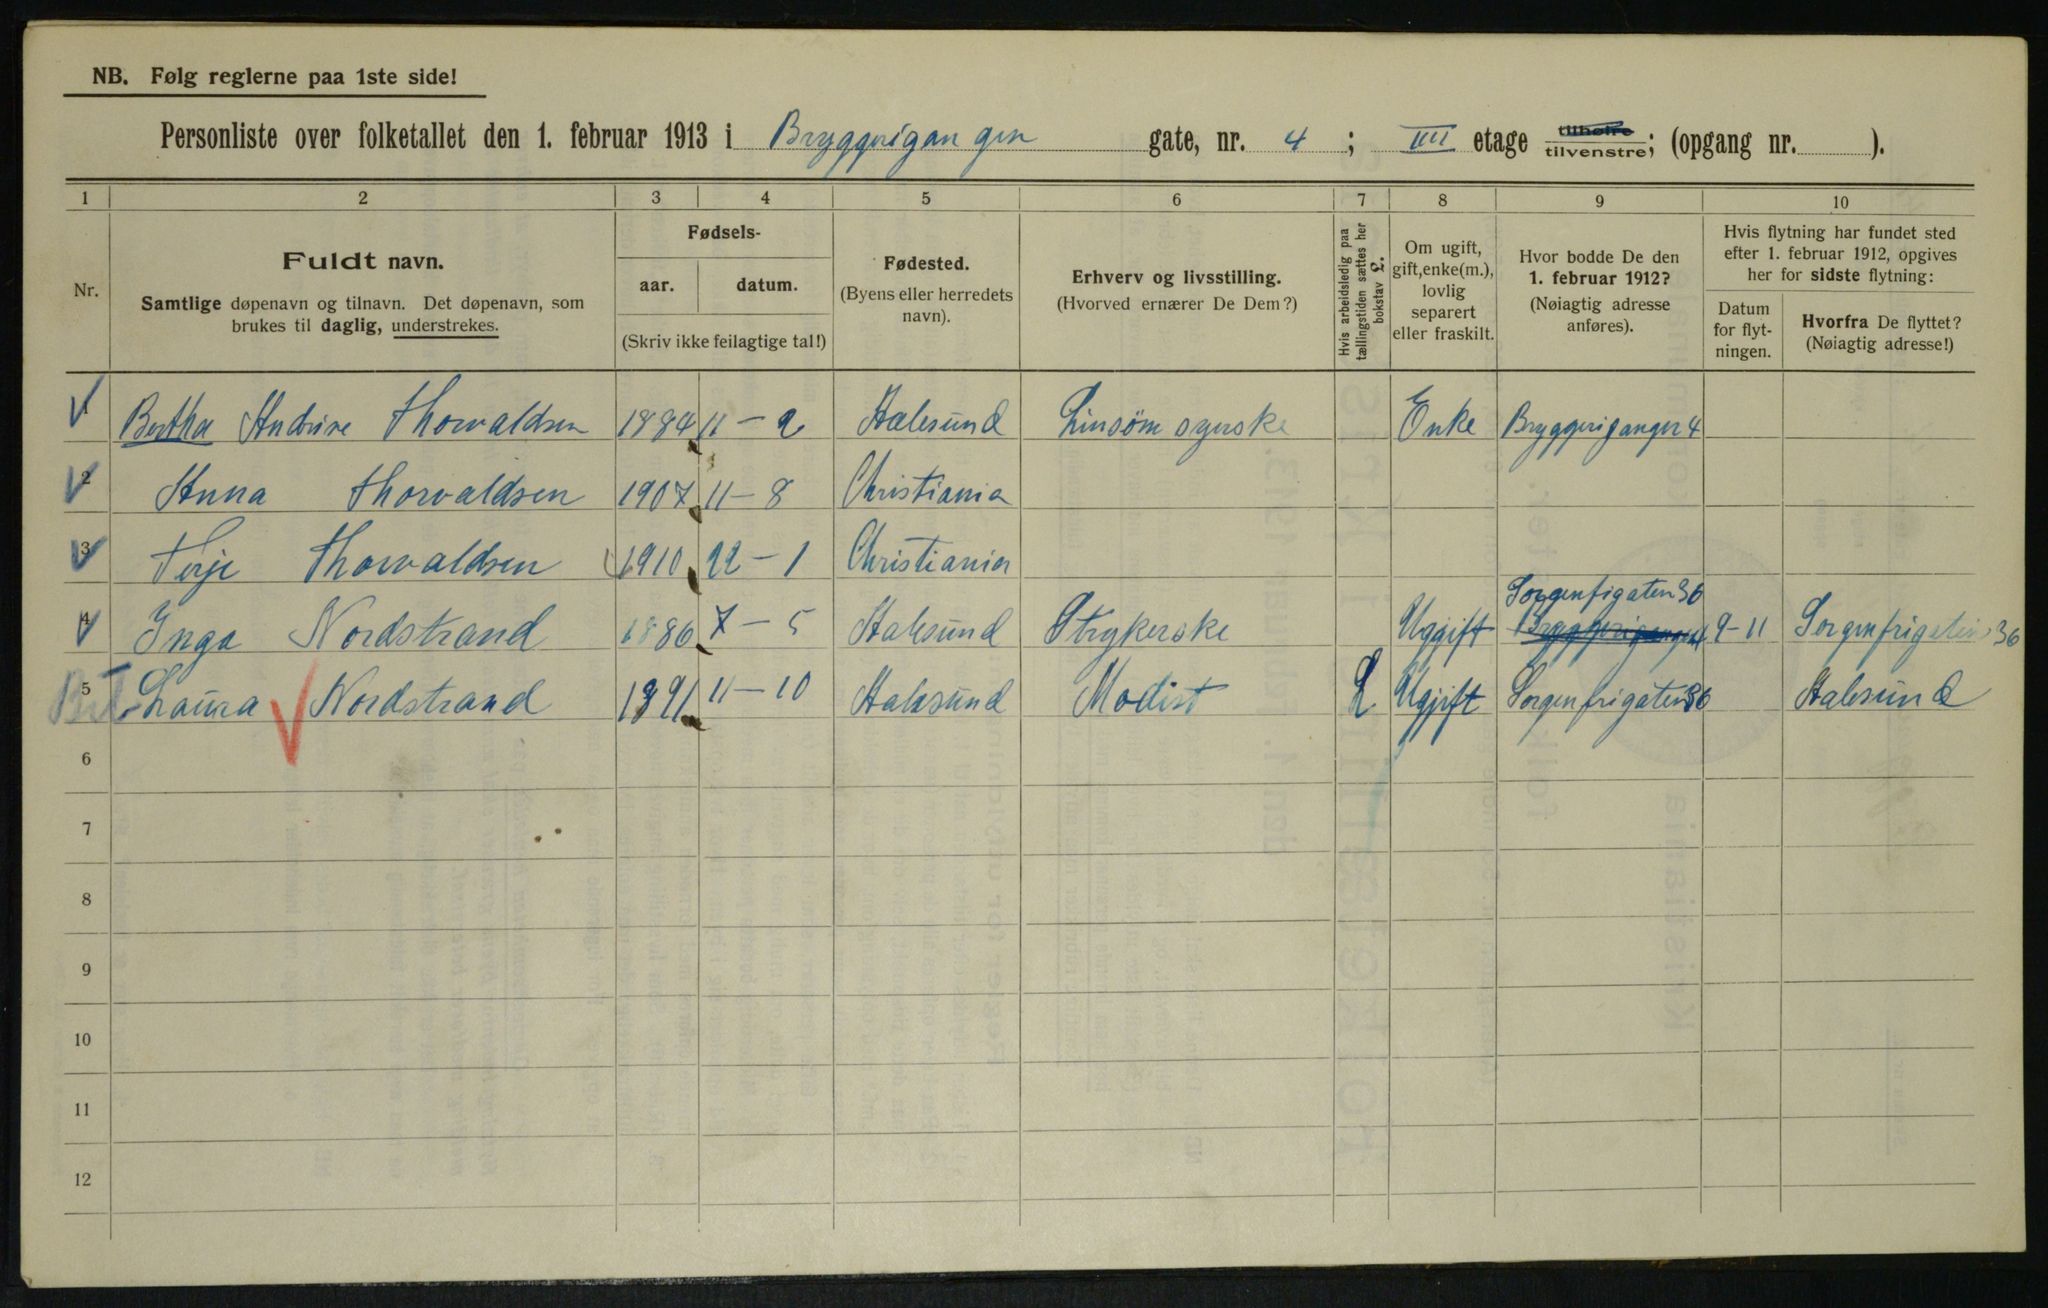 NB. Følg reglerne paa 1ste side!
Personliste over folketallet den 1. februar 1913 i Bryggerigangen gate, nr. 4; IIII etage tilhøire tilvenstre; (opgang nr. ).
1 2 3 4 5 6 7 8 9 10
Nr.
Fuldt navn.
Samtlige døpenavn og tilnavn. Det døpenavn, som
brukes til daglig, understrekes.
Fødsels-
aar. datum.
(Skriv ikke feilagtige tal!)
Fødested.
(Byens eller herredets
navn).
Erhverv og livsstilling.
(Hvorved ernærer De Dem?)
Hvis arbeidsledig paa
tællingstiden sættes her
bokstav L.
Om ugift,
gift, enke(m.),
lovlig
separert
eller fraskilt.
Hvor bodde De den
1. februar 1912?
(Nøiagtig adresse
anføres).
Hvis flytning har fundet sted
efter 1. februar 1912, opgives
her for sidste flytning:
Datum
for flyt-
ningen.
Hvorfra De flyttet?
(Nøiagtig adresse!)
1 Bertha Andrine Thorvaldsen 1884 11-2 Aalesund Linsømsyerske Enke Bryggerigangen 4
2 Anna Thorvaldsen 1907 11-8 Christiania
3 Terje Thorvaldsen 1910 22-1 Christiania
Sorgenfrigaten 36
4 Inga Nordstrand 1886 7-5 Aalesund Strykerske Uggift Bryggerigangen 4 9-11 Sorgenfrigaten 36
5 Laura Nordstrand 1891 11-10 Aalesund Modist L Ugift Sorgenfrigaten 36 Aalesund
6
7
8
9
10
11
12